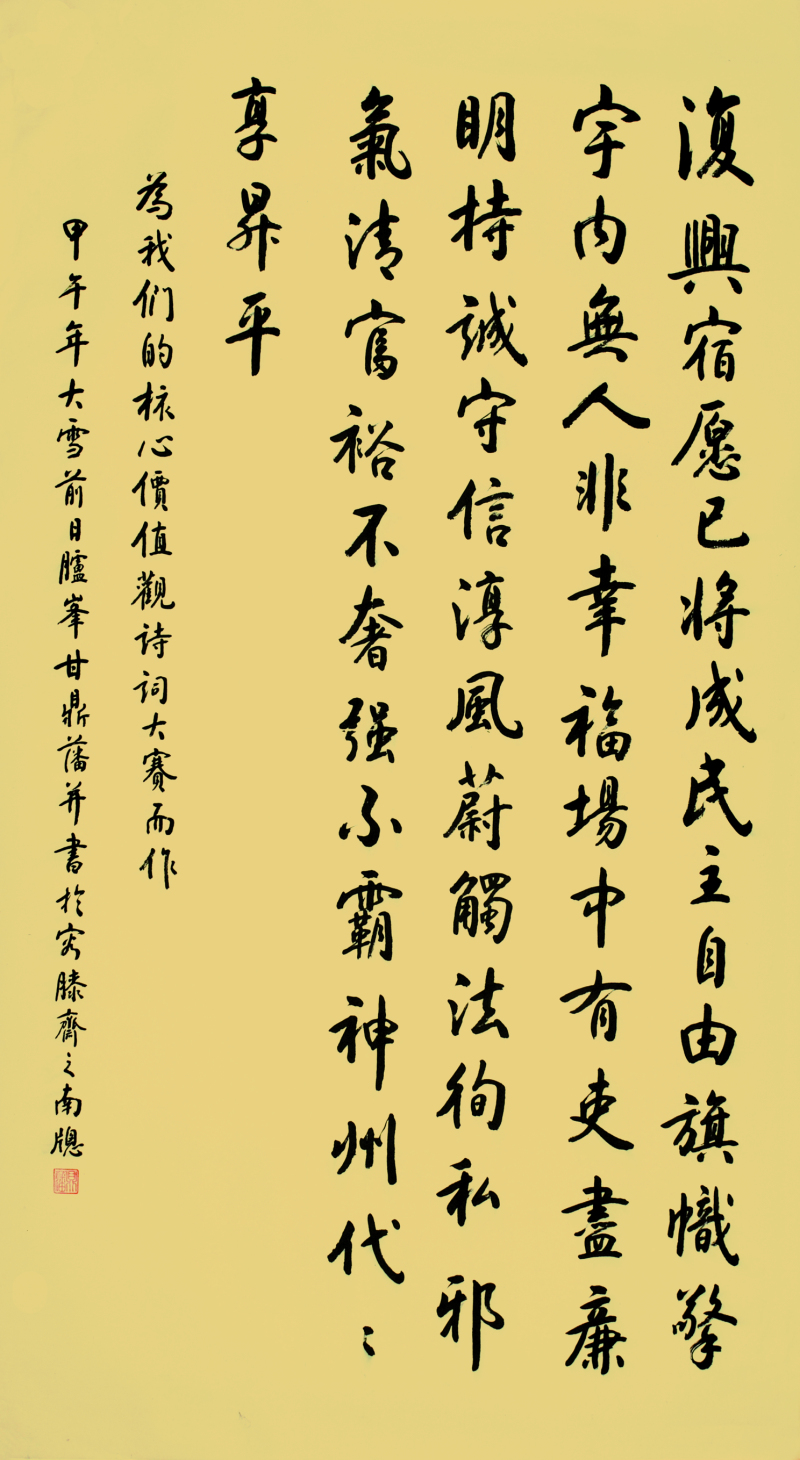 復興宿愿已將成民主自由旗幟擎
宇内無人非幸福場中有吏盡廉
明持誠守信淳風蔚觸法徇私邪
氣清富裕不奢强不霸神州代〻
享昇平
為我们的核心價值觀詩詞大賽而作
甲午年大雪前日臚峯甘鼎藩并書於容膝齋之南牕